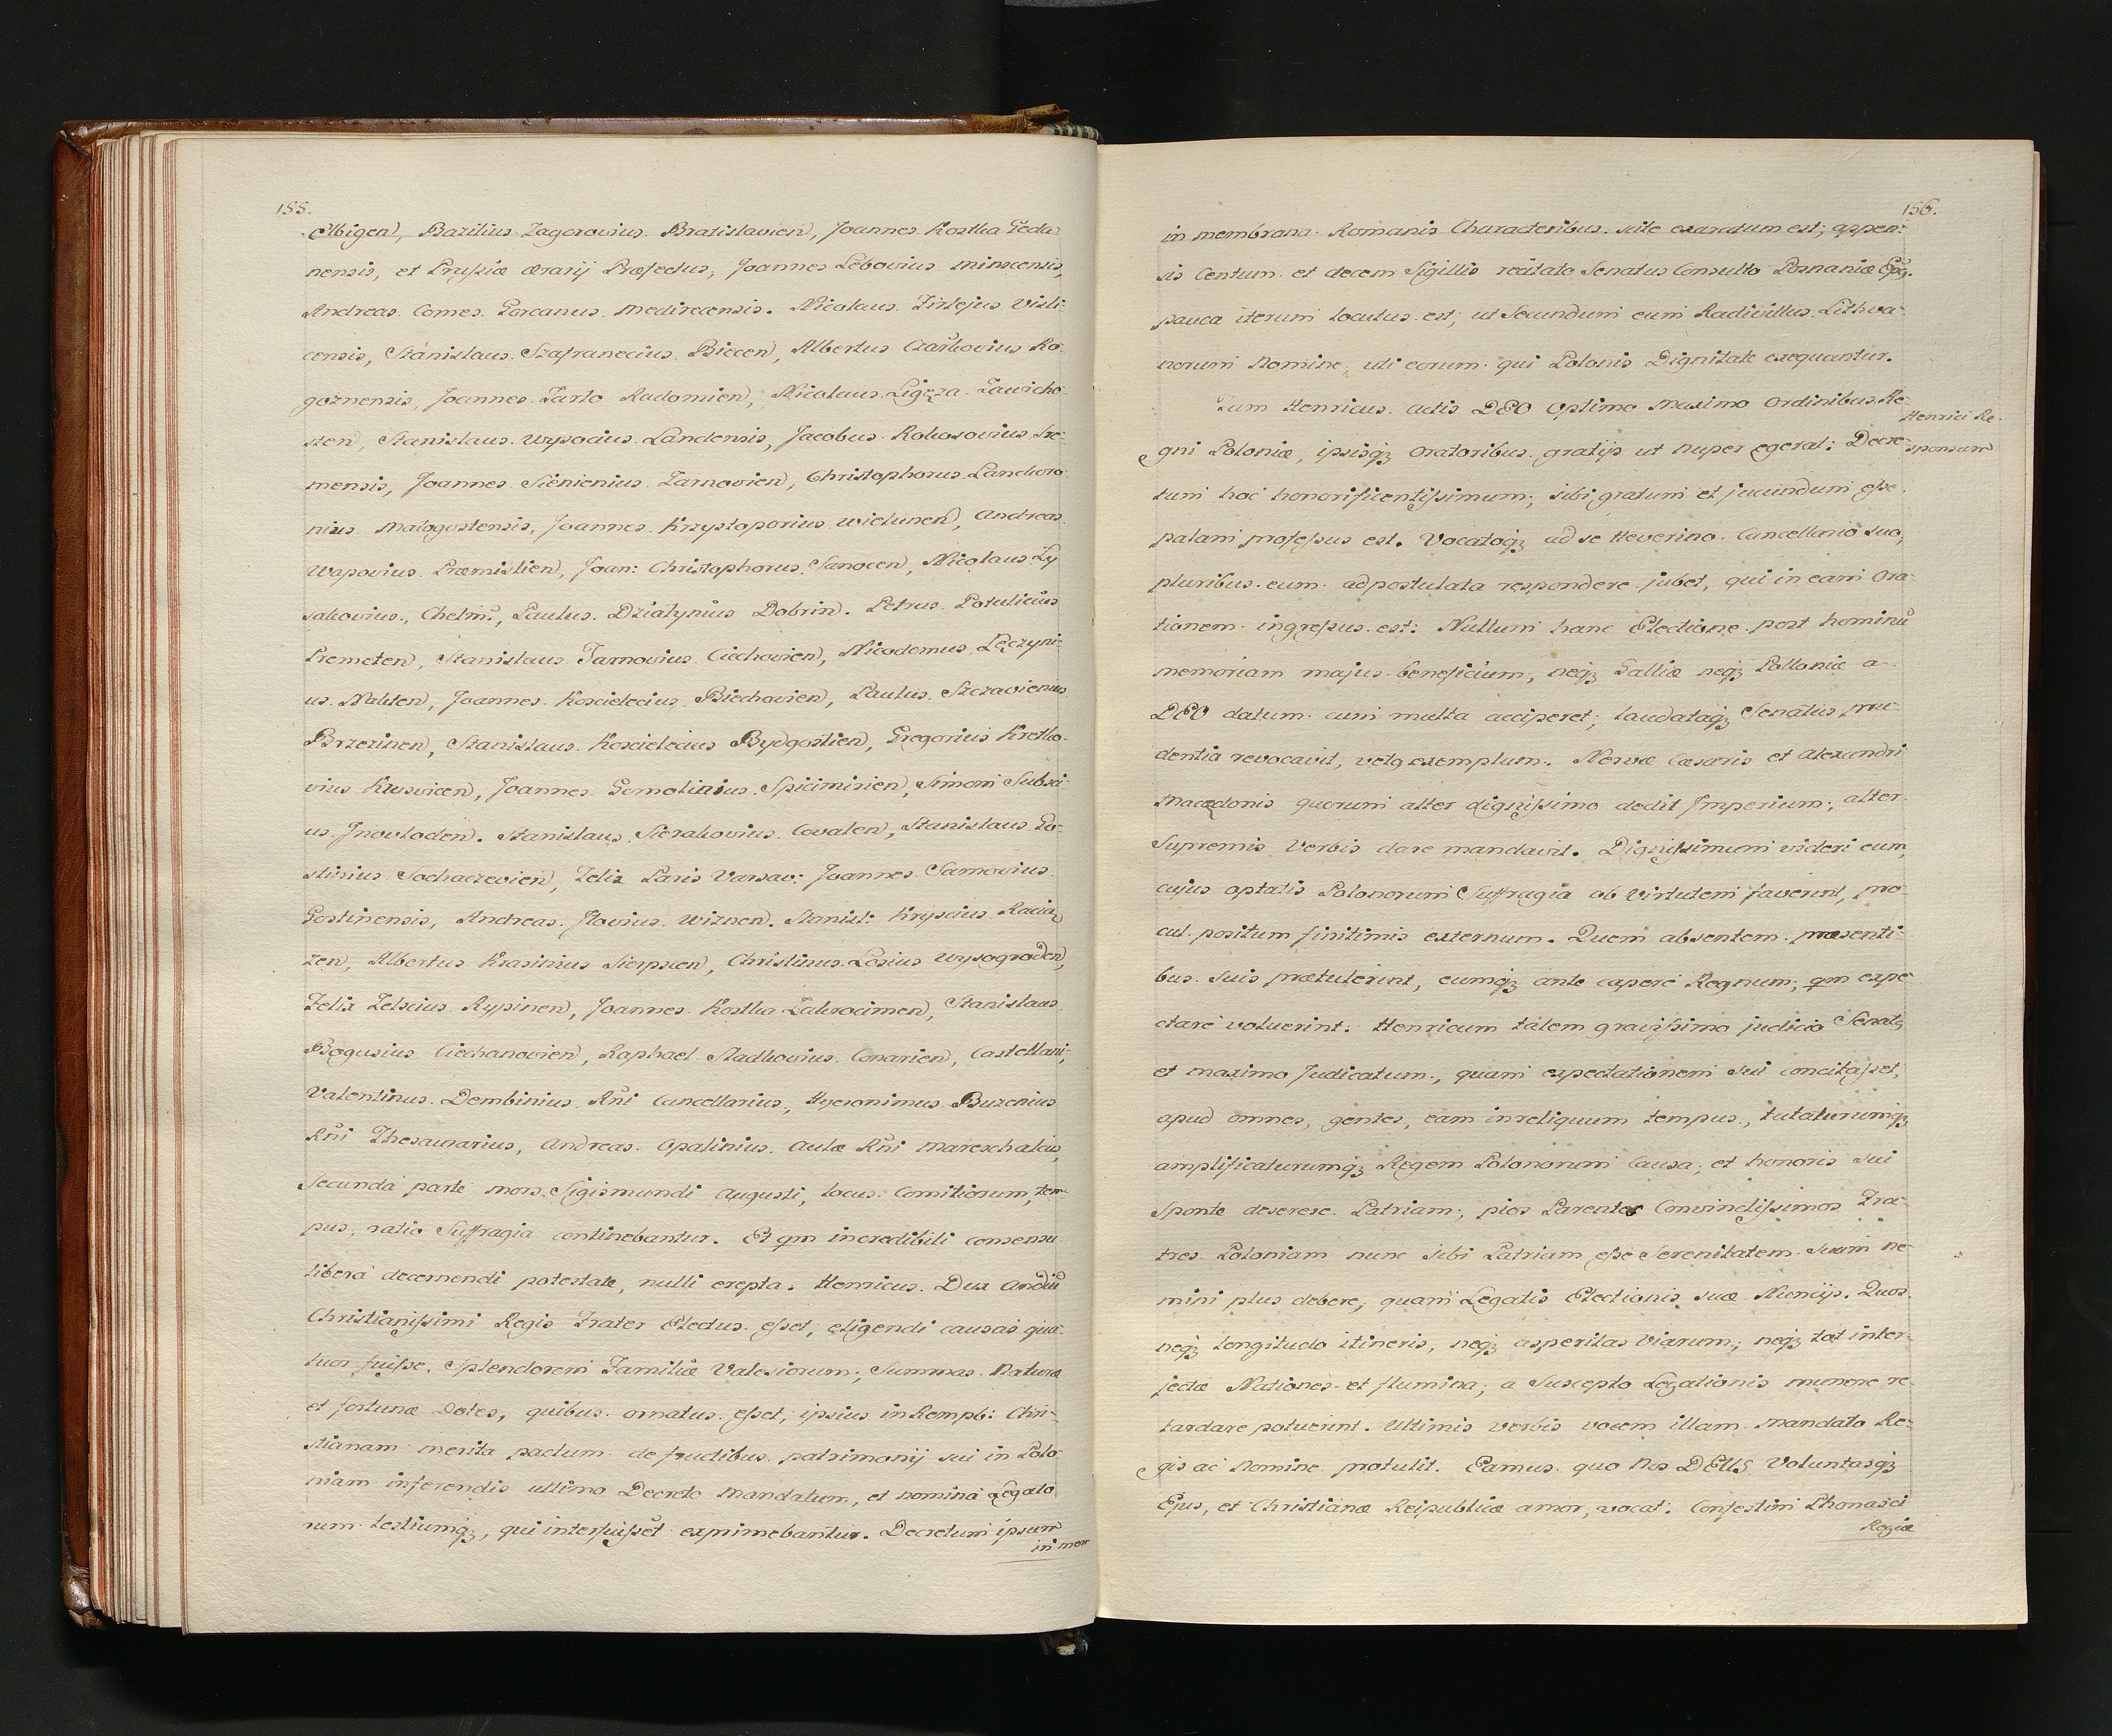 155.
Elbigen, Bazilius Zagorovius Bratislavien, Joannes Kostka Geda-
nensis, et Prussiæ ærarij Præfectus, Joannes Lebovius Minscensis,
Andreas Comes Gorcanus Medirecensis. Nicolaus Firlejus Visli-
censis, Stanislaus Szafranecius Biecen, Albertus Czarkovius Ro-
goznensis, Joannes Tarlo Radomien, Nicolaus Ligęza Zawicho-
sten, Stanislaus Wysocius Landensis, Jacobus Rokosovius Sre-
mensis, Joannes Sienienius Zarnovien, Christophorus Lanckoro-
nius Malogostensis, Joannes Krzystoporius Wielunen, Andreas
Wapovius Præmislien, Joan: Christophorus Sanocen, Nicolaus Ly
sakovius, Chelm:, Paulus Dzialynius Dobrin. Petrus Potulicius
Premeten, Stanislaus Tarnovius Ciechovien, Nicodemus Lęczyni-
us Naklen, Joannes Koscielecius Biechovien, Paulus Szczavienius
Brzezinen, Stanislaus Koscielecius Bydgostien, Gregorius Kretko-
vius Krusvicen, Joannes Gomolinius Spicimirien, Simon Subsci-
us Jnovloden. Stanislaus Sierakovius Covalen, Stanislaus Go-
stinius Sochaczevien, Felix Paris Varsav: Joannes Sarnovius
Gostinensis, Andreas Jlovius Wiznen. Stanisl: Kryscius Racia
zen, Albertus Krasinius Sierpscen, Christinus Losius Wysogroden,
Felix Zelscius Rypinen, Joannes Kostka Zakrocimen, Stanislaus
Bogusius Ciechanovien, Raphael Sladkovius Conarien, Castellani;
Valentinus Dembinius Rni Cancellarius, Hyeronimus Buzenius
Rni Thesaurarius, Andreas Opalinius Aulæ Rni Mareschalcus,
Secunda parte mors Sigismundi Augusti, locus Comitiorum, tem-
pus, ratio Suffragia continebantur. Et qm incredibili consensu
libera decernendi potestate, nulli erepta. Henricus Dux Andiũ
Christianissimi Regis Frater Electus esset, eligendi causas qua-
tuor fuisse. Splendorem Familiæ Valesiorum; Summas Naturæ
et fortunæ Dotes, quibus ornatus esset, ipsius in Rempb: Chri-
stianam merita pactum de fructibus patrimonij sui in Polo-
niam inferendis ultimo Decreto Mandatum, et nomina Legato
rum testiumqз, qui interfuisset exprimebantur. Decretum ipsum
in mem
156.
in membrana Romanis Characteribus scite exaratum est; appen-
sis Centum et decem Sigillis recitato Senatus Consulto Posnaniæ Epg.
pauca iterum locutus est; ut Secundum eum Radivillus Lithva-
norum Nomine, uti eorum qui Polonis Dignitate exequantur.
Tum Henricus actis DEO Optimo Maximo Ordinibus Re-
Henrici Re-
gni Poloniæ, ipsisqз Oratoribus gratijs ut nuper egerat: Decre-
sponsum
tum hoc honorificentissimum; sibi gratum et jucundum esse
palam professus est. Vocatoqз ad se Heverino Cancellario suo,
pluribus eum ad postulata respondere jubet, qui in eam Ora-
tionem ingressus est: Nullum hanc Electione post hominũ
memoriam majus beneficium, neqз Galliæ neqз Polloniæ a
DEO datum cum multa acciperet; laudataqз Senatus pru-
dentia revocavit, vetg exemplum. Nervæ Cæsaris et Alexandri
Macedonis quorum alter dignissimo dedit Jmperium; alter
Supremis Verbis dare mandavit. Dignissimum videri eum,
cujus optatis Polonorum Suffragia ob Virtutem faverint, pro-
cul positum finitimis externum. Quem absentem præsenti-
bus suis prætulerint, eumqз ante capere Regnum, qm expe-
ctare voluerint: Henricum talem gravissimo judicio Senatg
et maximo Judicatum, quam expectationem sui concitasset,
apud omnes gentes, eam in reliquum tempus, tutaturumqз
amplificaturumqз Regem Polonorum Causa, et honoris sui
sponte deserere Patriam; pios Parentes Conjunctissimos Fra-
tres Poloniam nunc sibi Patriam esse Serenitatem suam ne-
mini plus debere, quam Legatis Electionis suæ Nuncijs. Quos
neqз longitudo itineris, neqз asperitas Viarum; neqз tot inter-
jectæ Nationes et flumina; a Suscepto Legationis munere re-
tardare potuerint. Ultimis verbis vocem illam Mandato Re-
gis ac Nomine protulit. Eamus quo Nos DEUS Voluntasqз
Ejus, et Christianæ Reipublicæ amor, vocat. Confestim Phonasci
Regiæ